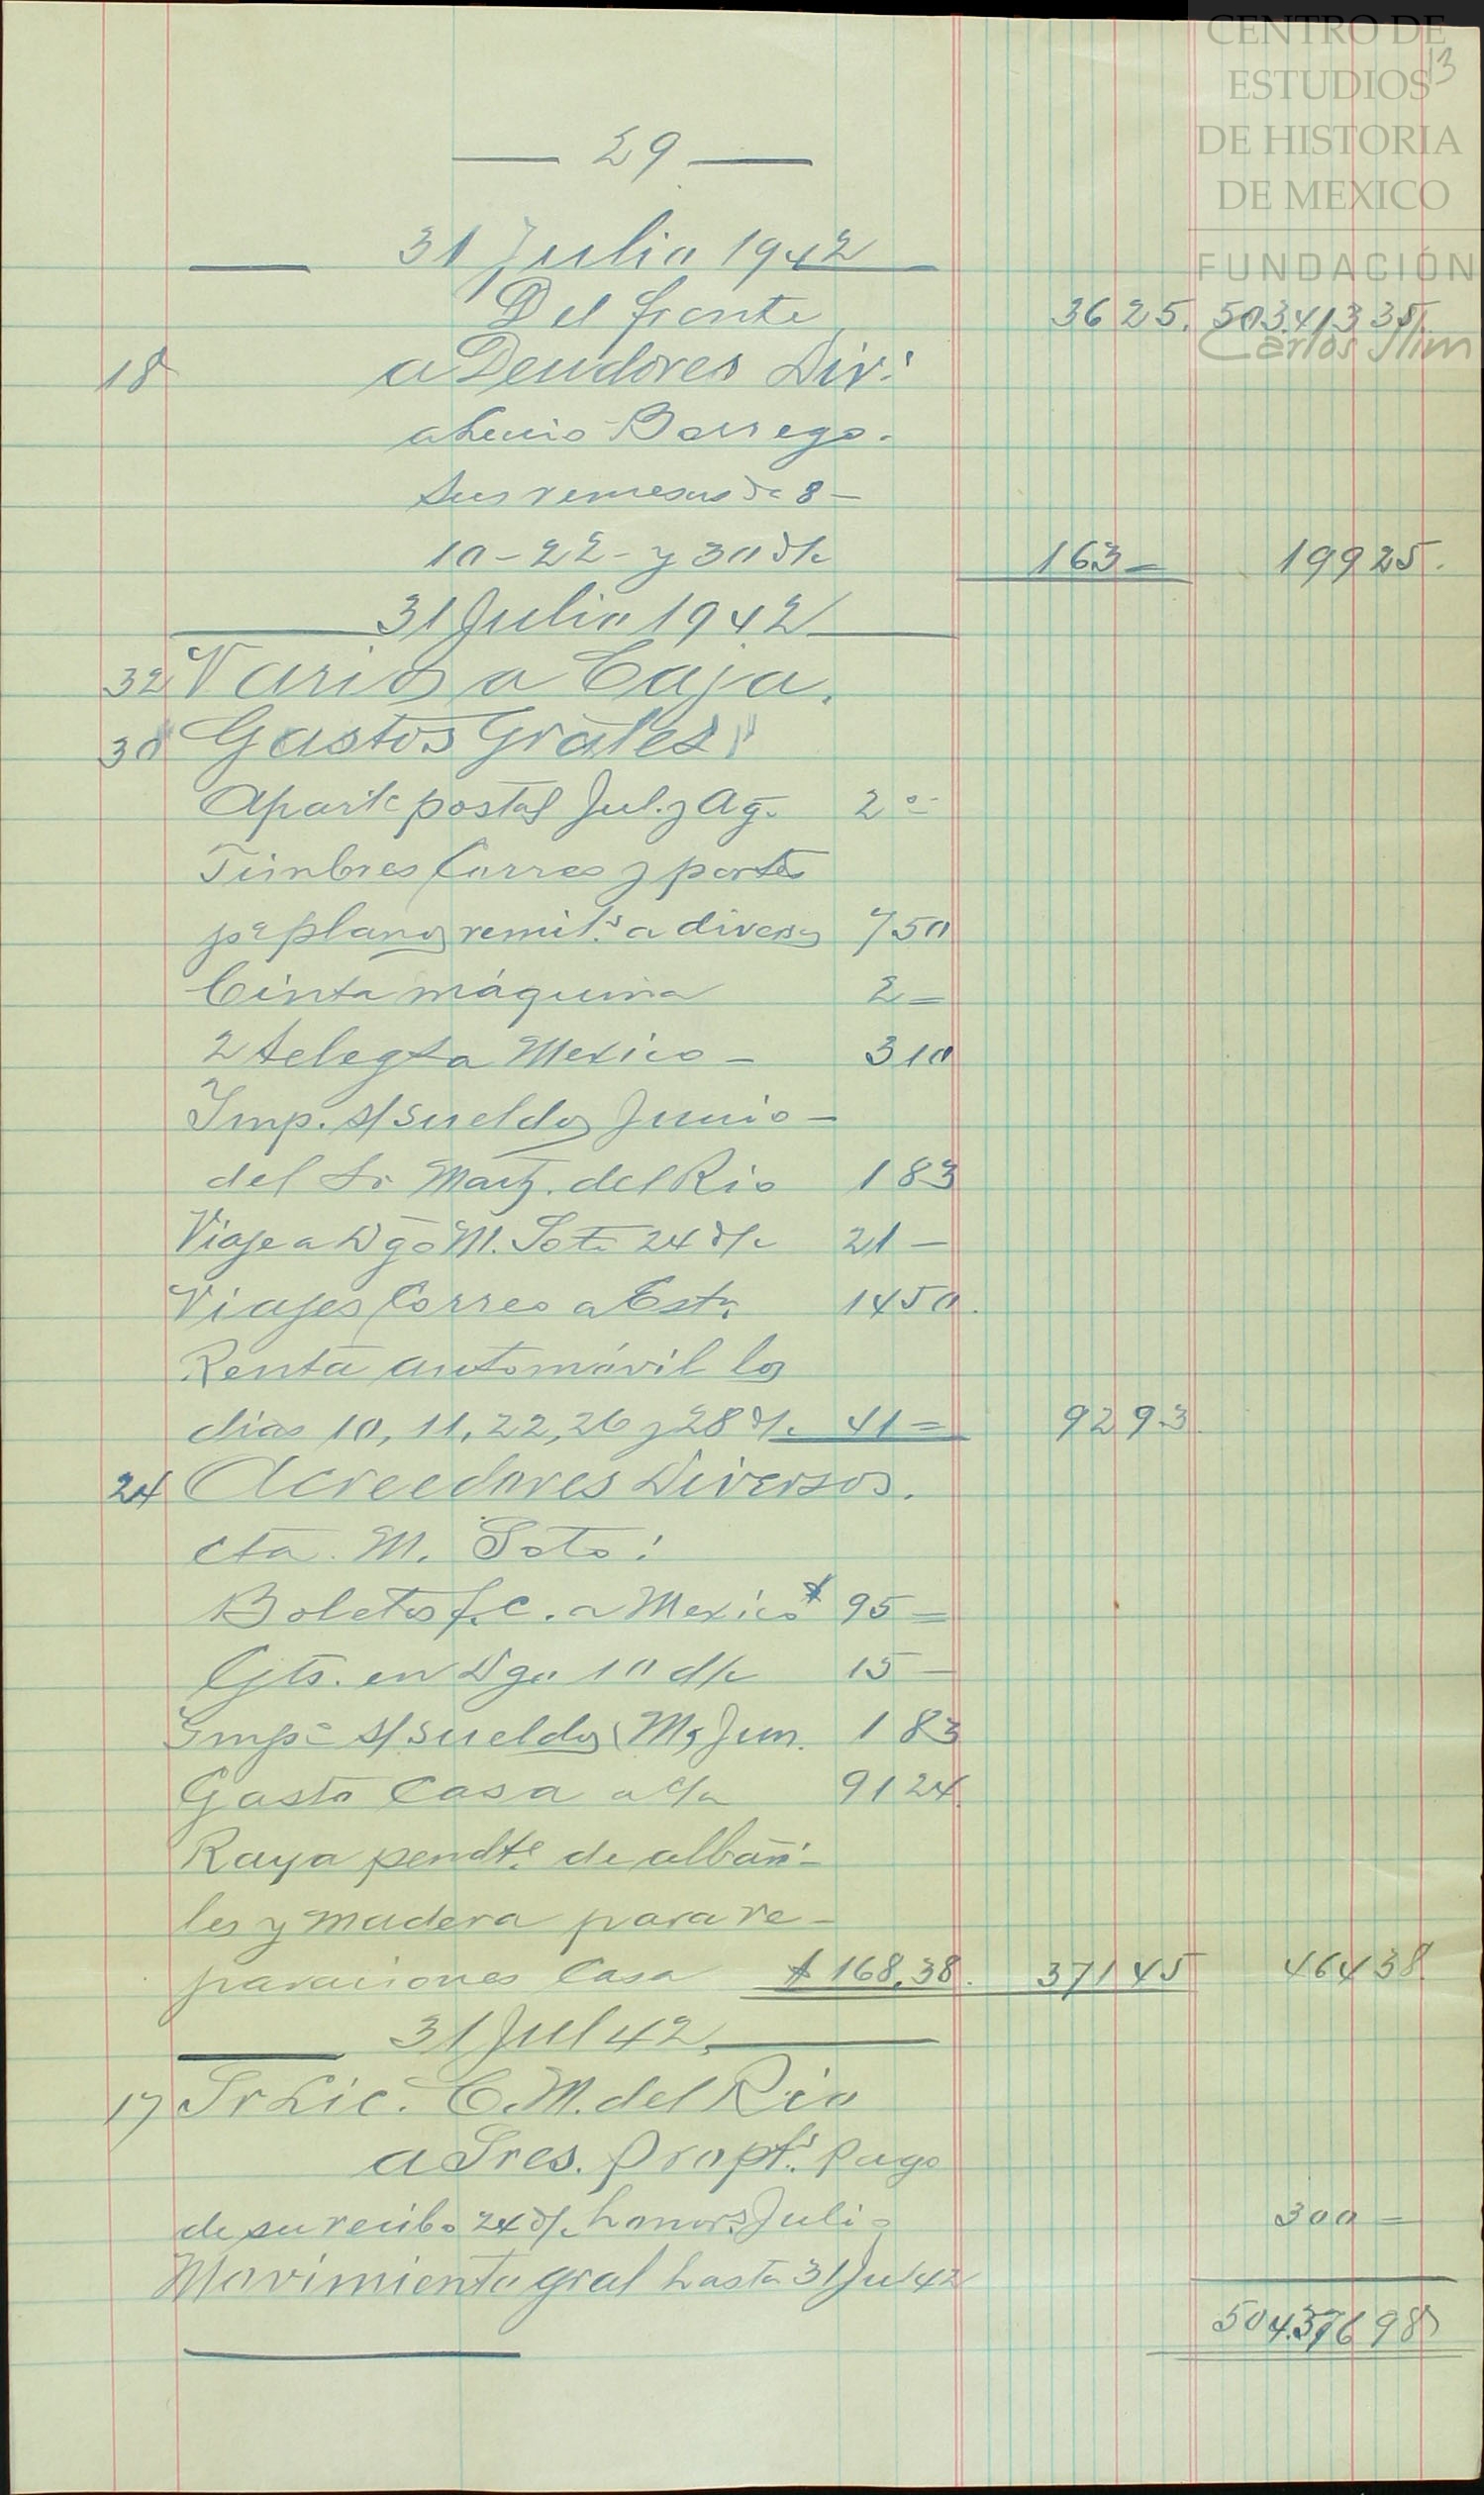 CENTRO DE
ESTUDIOS
DE HISTORIA
DE MEXICO
FUNDACIÓN
Carlos Slim
13
29
31 Julio 1942
Del frente 3625. 503.413 35.
18 a Deudores Div.
a Lucio Borrego.
sus remesas de 8 -
10 - 22 - y 30 d/c 163 = 199 25.
31 Julio 1942
32 Varios a Caja.
30 Gastos Grales.
Apart postal Jul. y Ag. 2 =
Timbres Correo y portes
pa planos remit.s a diversos 7 50
Cinta máquina 2 =
2 telegs a Mexico - 3 10
Imp. s/sueldos Junio -
del Sr Martz. del Rio 1 83
Viaje a Dgo M. Soto 24 d/c 21 -
Viajes Correo a Estn. 14 50.
Renta automóvil los
dias 10, 11, 22, 26 y 28 d/c 41 = 92 93.
24 Acreedores Diversos.
cta. M. Soto:
Boletos f.c. a Mexico $ 95 =
Gts. en Dgo 10 d/c 15 -
Impo s/sueldos My Jun. 1 83
Gasto Casa a c/ 91 24.
Raya pendte. de albañi-
les y madera para re-
paraciones Casa $ 168.38. 371 45 464 38.
31 Jul 42.
17 Sr Lic. C. M. del Rio
a Sres. Propt.s Pago
de su recibo 24 d/c honors. Julio 300 =
Movimiento gral hasta 31 Jul 42
504.376 98